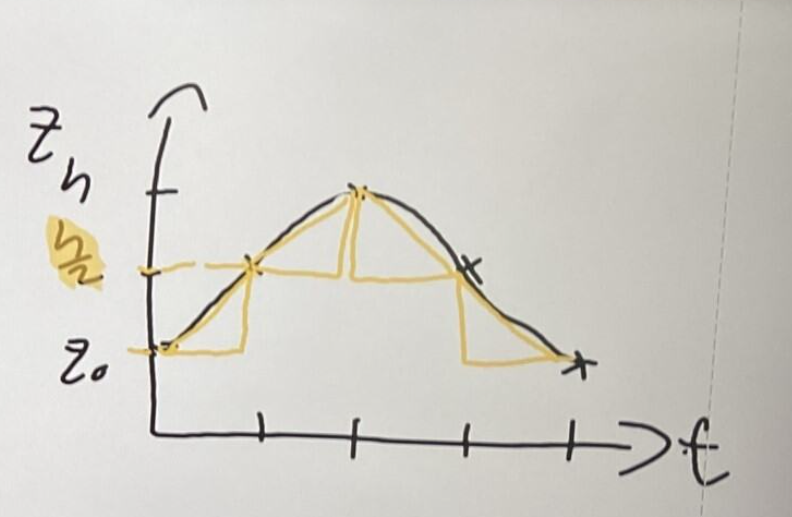 z
h
h/2
z₀
t